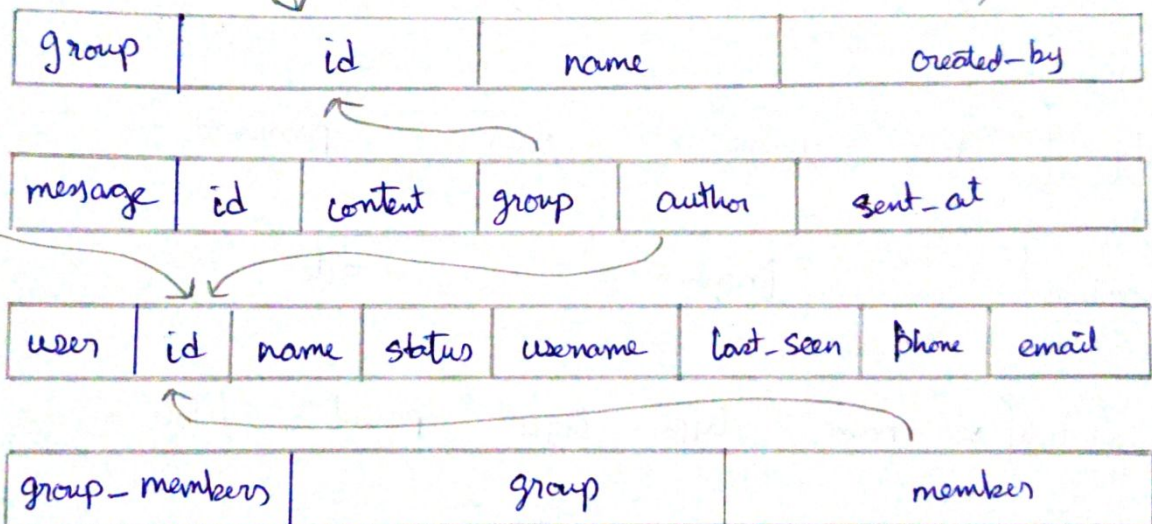 group id name created_by
message id content group author sent_at
user id name status username last_seen phone email
group_members group member